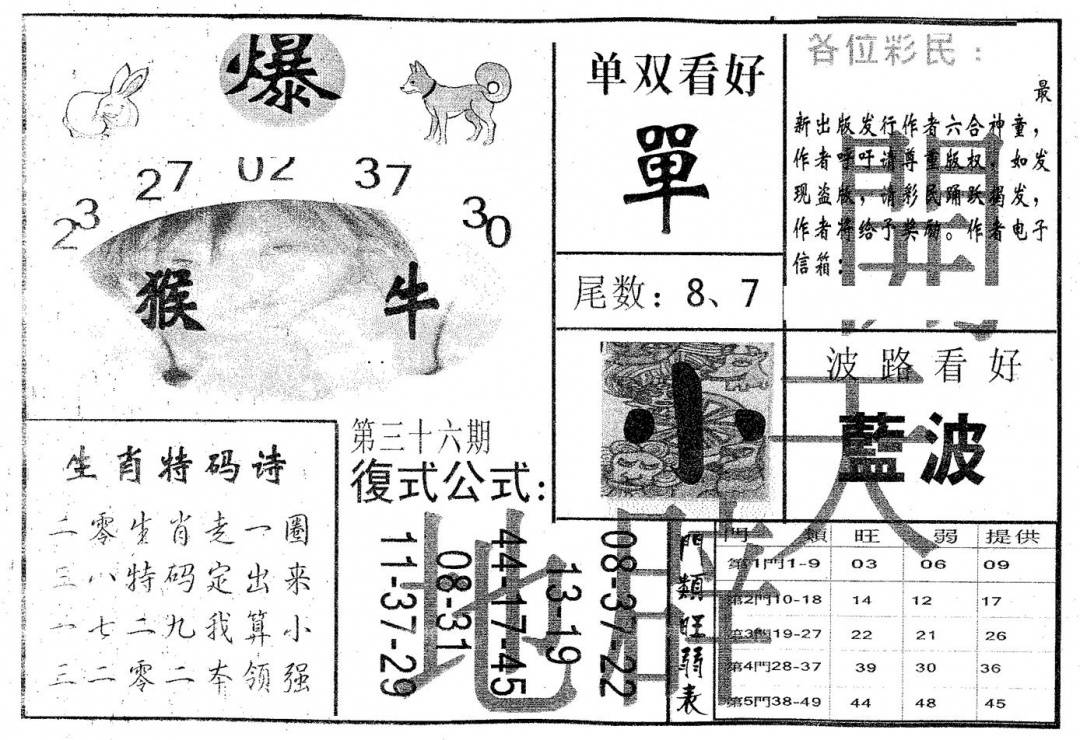 爆
23 27 02 37 30
猴 牛
单双看好
單
尾数：8、7
各位彩民：
最
新出版发行作者六合神童，
作者呼吁请尊重版权，如发
现盗版，请彩民踊跃揭发，
作者将给予奖励。作者电子
信箱：
小
波路看好
藍波
生肖特码诗
二零生肖走一圈
三八特码定出来
一七二九我算小
三二零二本领强
第三十六期
復式公式：
11-37-29
08-31
44-17-45
13-19
08-37-22
門類旺弱表
門類 旺 弱 提供
第1門1-9 03 06 09
第2門10-18 14 12 17
第3門19-27 22 21 26
第4門28-37 39 30 36
第5門38-49 44 48 45
開
天
地